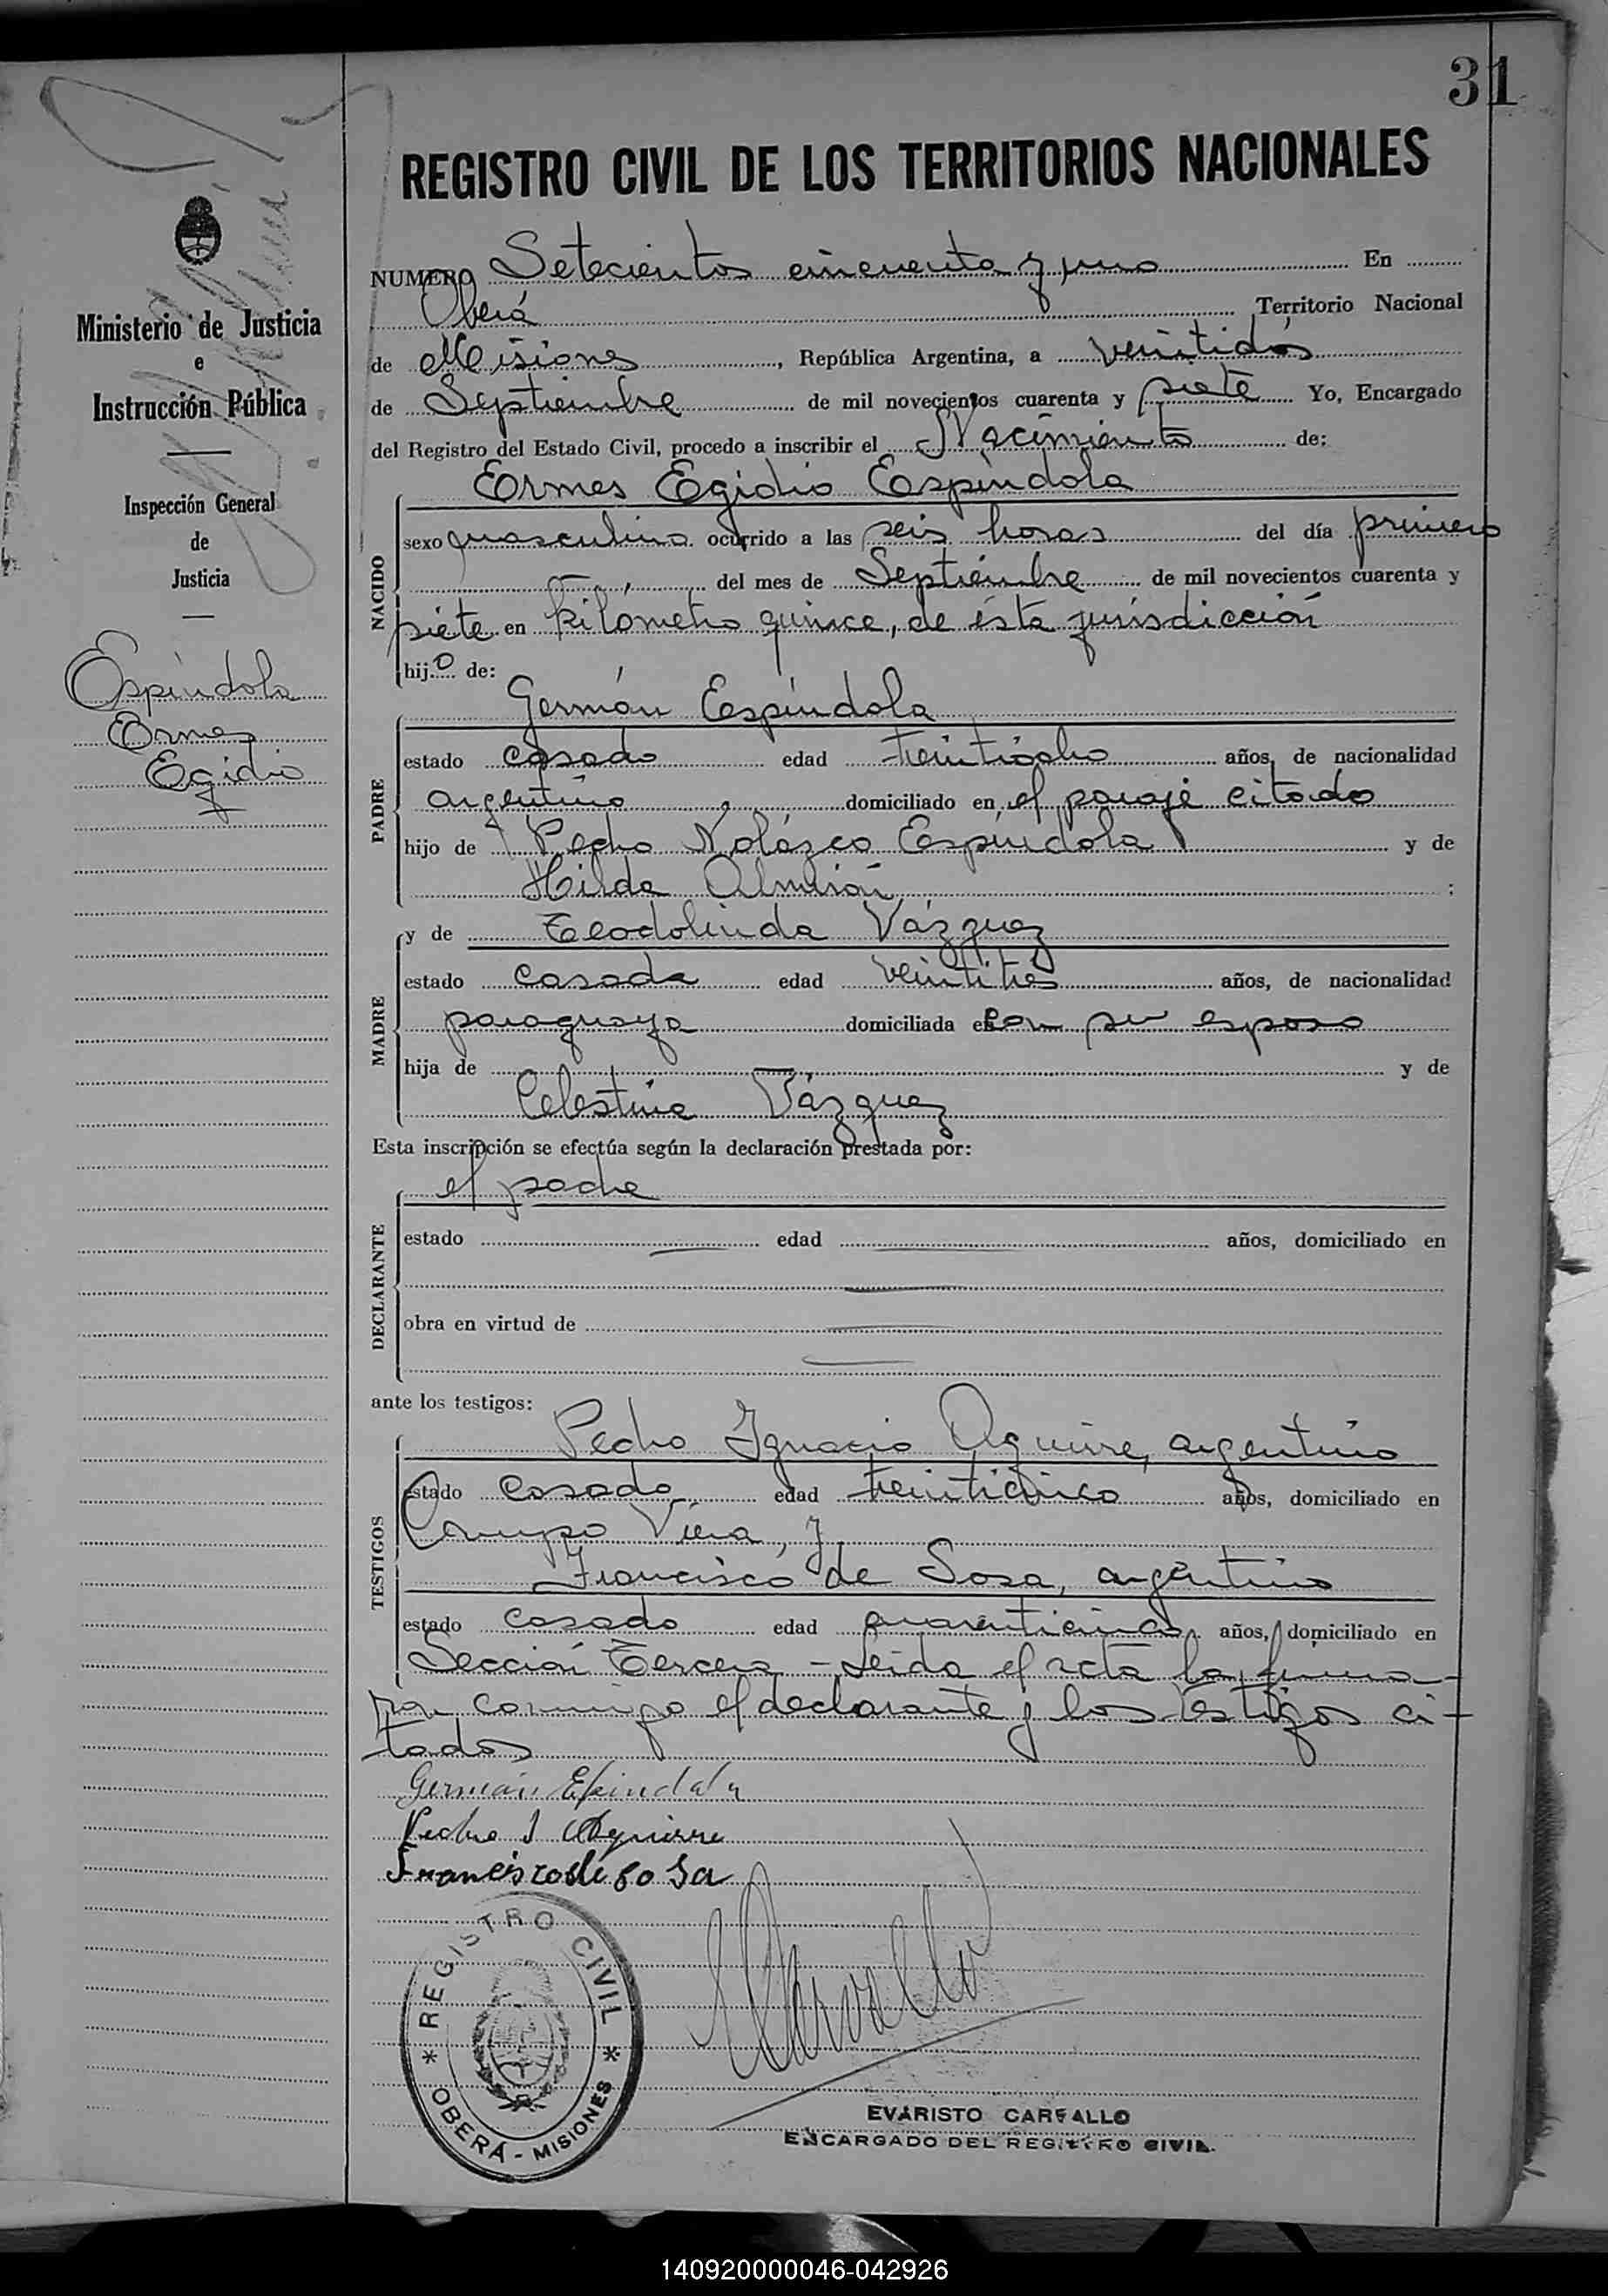 31
REGISTRO CIVIL DE LOS TERRITORIOS NACIONALES
Ministerio de Justicia
e
Instrucción Pública
Inspección General
de
Justicia
Espíndola
Ermes
Egidio
NUMERO Setecientos cincuenta y uno En
Oberá Territorio Nacional
de Misiones, República Argentina, a veintidós
de Septiembre de mil novecientos cuarenta y siete Yo, Encargado
del Registro del Estado Civil, procedo a inscribir el Nacimiento de:
Ermes Egidio Espíndola
NACIDO
sexo masculino ocurrido a las seis horas del día primero
del mes de Septiembre de mil novecientos cuarenta y
siete en kilómetro quince, de ésta jurisdicción
hijo de:
Germán Espíndola
PADRE
estado casado edad treintiocho años, de nacionalidad
argentino domiciliado en el paraje citado
hijo de Pedro Nolázco Espíndola y de
Hilda Almirón;
MADRE
y de Teodolinda Vázquez
estado casada edad veintitrés años, de nacionalidad
paraguaya domiciliada en con su esposo
hija de y de
Celestina Vázquez
Esta inscripción se efectúa según la declaración prestada por:
el padre
DECLARANTE
estado edad años, domiciliado en
obra en virtud de
ante los testigos:
Pedro Ignacio Aguirre, argentino
TESTIGOS
estado casado edad treinticinco años, domiciliado en
Campo Viera, y
Francisco de Sosa, argentino
estado casado edad cuarenticinco años, domiciliado en
Sección Tercera - Leída el acta la firma-
ron conmigo el declarante y los testigos ci-
tados
Germán Espindola
Pedro I Aguirre
Francisco de Sosa
Carvallo
REGISTRO CIVIL
* OBERÁ - MISIONES *
EVARISTO CARVALLO
ENCARGADO DEL REGISTRO CIVIL.
140920000046-042926